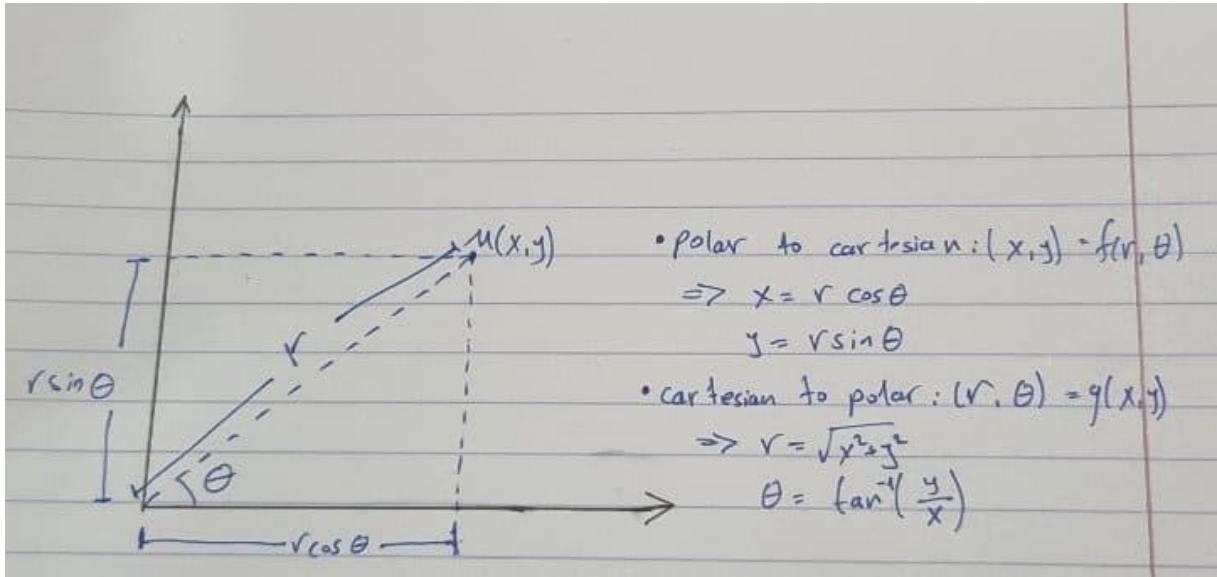 M(x,y)
r
r sin θ
θ
r cos θ
• polar to cartesian : (x,y) = f(r, θ)
=> x = r cos θ
y = r sin θ
• cartesian to polar : (r, θ) = g(x,y)
=> r = √x²+y²
θ = tan⁻¹(y/x)